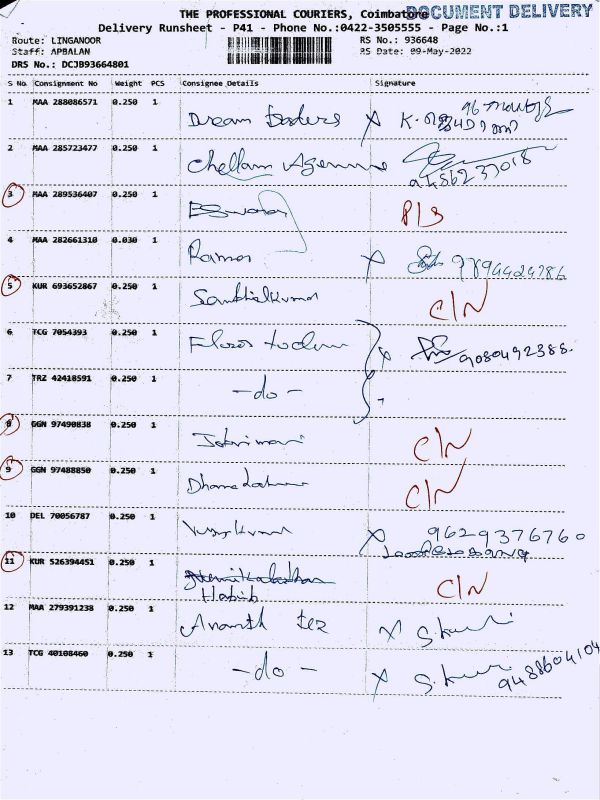 THE PROFESSIONAL COURIERS, Coimbatore DOCUMENT DELIVERY
Delivery Runsheet - P41 - Phone No.:0422-3505555 - Page No.:1
Route: LINGANOOR RS No.: 936648
Staff: APBALAN RS Date: 09-May-2022
DRS No.: DCJB93664801
S No. Consignment No Weight PCS Consignee Details Signature
1 MAA 288086571 0.250 1 Dream Traders X
2 MAA 285723477 0.250 1 Chellam 9486237018
3 MAA 289536407 0.250 1
4 MAA 282661310 0.030 1 Raman X
5 KUR 693652867 0.250 1 C/N
6 TCG 7054393 0.250 1 X 9080492388.
7 TRZ 42418591 0.250 1 - do -
8 GGN 97490838 0.250 1 C/N
9 GGN 97488850 0.250 1 C/N
10 DEL 70056787 0.250 1 X 9629376760
11 KUR 526394451 0.250 1 C/N
Habib
12 MAA 279391238 0.250 1 Ananth tex X
13 TCG 40108460 0.250 1 - do - X 9488604104